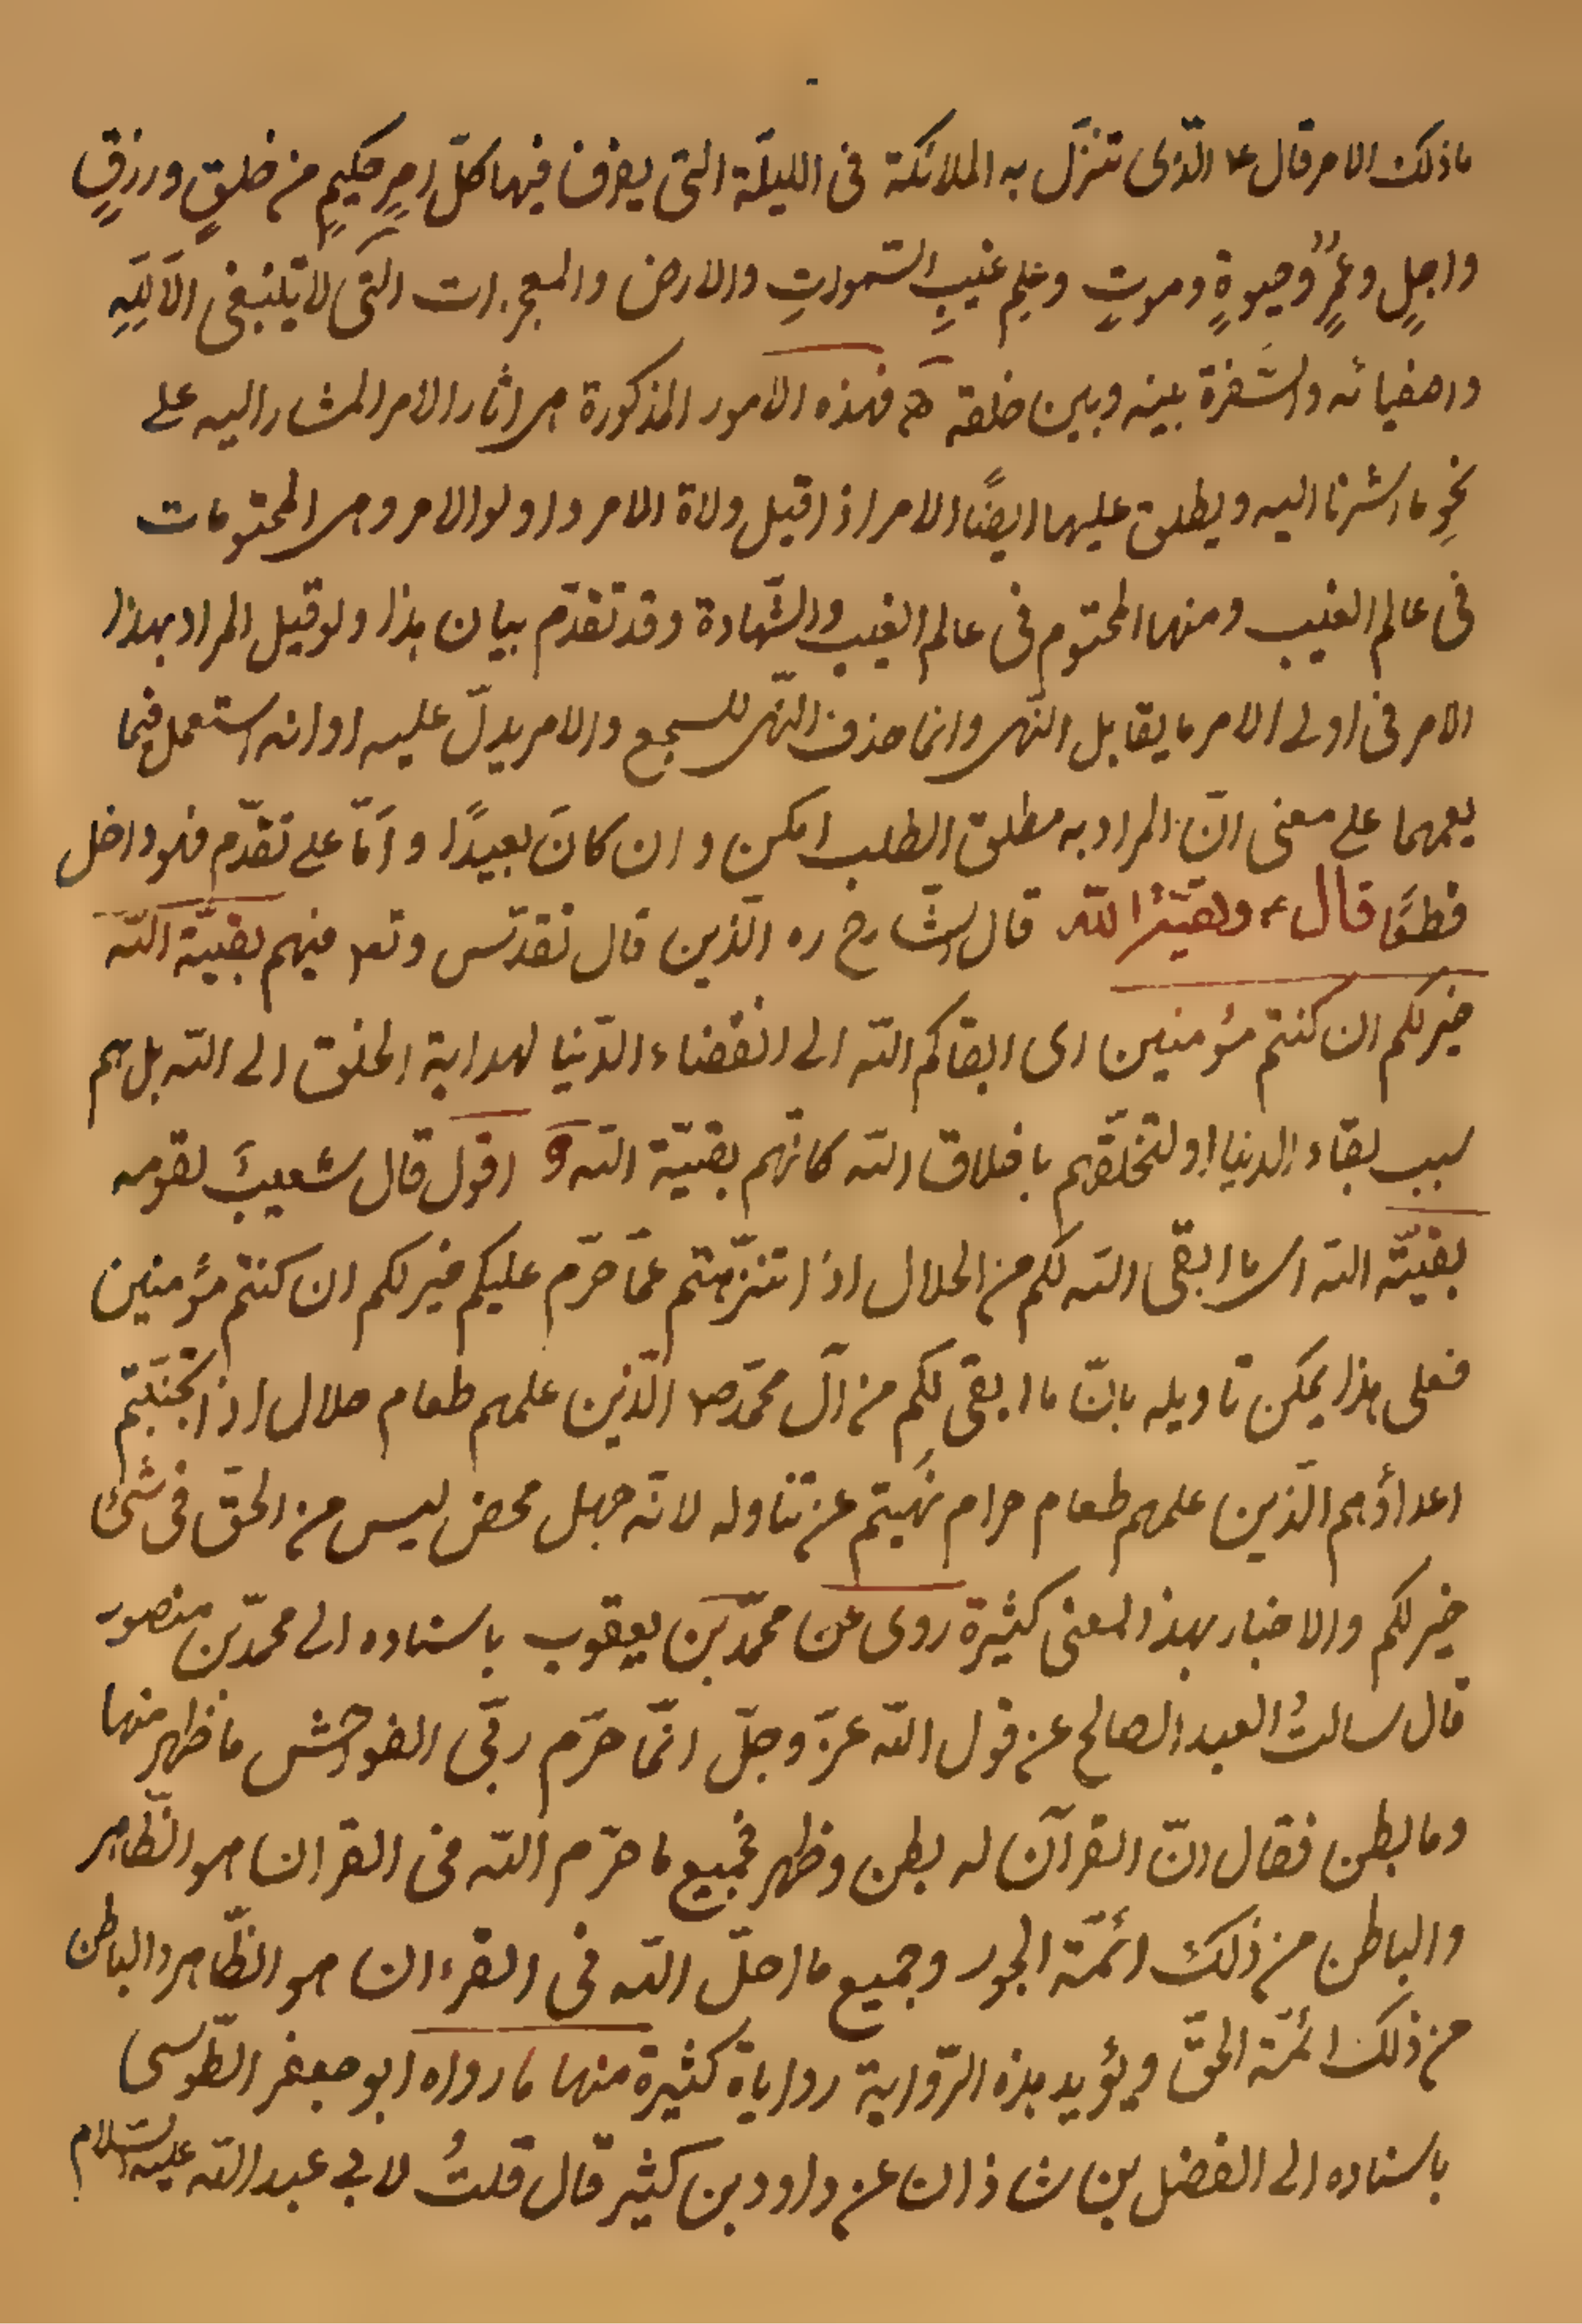 ما ذلك الامر قال ع الّذى تنزّل به الملائكة فى الليلة التى يفرق فيها كلّ امرٍ حكيمٍ من خلقٍ ورزقٍ
واجلٍ وعمرٍ وحيوةٍ وموتٍ وعلم غيبِ السّمواتِ والارض والمعجزات التى لا تنبغى الّا للّهِ
واصفيائه والسَّفرة بينه وبين خلقه فهذه الامور المذكورة هى اثار الامر المشار اليه على
نحوِ ما اشرنا اليه ويطلق عليها ايضًا الامر اذا قيل ولاة الامر واولوا الامر وهى المحتومات
فى عالم الغيب ومنها المحتوم فى عالم الغيب والشّهادة وقد تقدّم بيان هذا ولو قيل المراد بهذا
الامر فى اولى الامر ما يقابل النّهى وانما حذف النّهى للسجع والامر يدلّ عليه او انه استعمل فيما
يعمهما على معنى انّ المراد به مطلق الطلب امكن وان كانَ بعيدًا وامّا على تقدّم فهو داخل
قطعًا قال ع وبقيّة اللّه قال الشّارح ره الّذين قال تقدّس وتع فيهم بقيّة اللّه
خير لكم ان كنتم مؤمنين اى ابقاكم اللّه الى انقضاء الدّنيا لهداية الخلق الى اللّه بل هم
سبب بقاء الدنيا او لتخلّقهم باخلاق اللّه كانّهم بقيّة اللّه اقول قال شعيبَ لقومه
بقيّة اللّه اى ما ابقى اللّه لكم من الحلال اذا تنزّهتم عمّا حرّم عليكم خير لكم ان كنتم مؤمنين
فعلى هذا يمكن تاويله بانّ ما ابقى لكم من آل محمّد ص الّذين علمهم طعام حلال اذا اجتنبتم
اعداؤهم الّذين علمهم طعام حرام نُهيتم عن تناوله لانّه جهل محض ليس من الحقّ فى شئ
خير لكم والاخبار بهذا المعنى كثيرة روى عن محمّد بن يعقوب باسناده الى محمّد بن منصور
قال سالتُ العبد الصالح عن قول اللّه عزّ وجلّ انّما حرّم ربّى الفواحش ما ظهر منها
وما بطن فقال انّ القرآن له بطن وظهر فجميع ما حرّم اللّه فى القران هو الظّاهر
والباطن من ذلك ائمّة الجور وجميع ما احلّ اللّه فى القرءان هو الظّاهر والباطن
من ذلك ائمّة الحقّ ويؤيد هذه الرّواية رواياة كثيرة منها ما رواه ابو جعفر الطّوسى
باسناده الى الفضل بن شاذان عن داود بن كثير قال قلتُ لابى عبد اللّه عليه السّلام